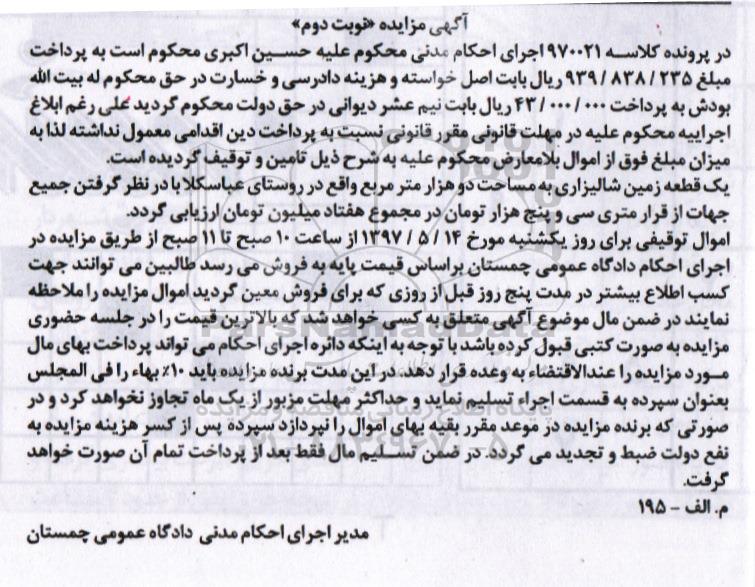 آگهی مزایده «نوبت دوم»
در پرونده کلاسه ۹۷۰۰۲۱ اجرای احکام مدنی محکوم علیه حسین اکبری محکوم است به پرداخت
مبلغ ۹۳۹/۸۳۸/۲۳۵ ریال بابت اصل خواسته و هزینه دادرسی و خسارت در حق محکوم له بیت الله
بودش به پرداخت ۴۳/۰۰۰/۰۰۰ ریال بابت نیم عشر دیوانی در حق دولت محکوم گردید علی رغم ابلاغ
اجراییه محکوم علیه در مهلت قانونی مقرر قانونی نسبت به پرداخت دین اقدامی معمول نداشته لذا به
میزان مبلغ فوق از اموال بلامعارض محکوم علیه به شرح ذیل تامین و توقیف گردیده است.
یک قطعه زمین شالیزاری به مساحت دو هزار متر مربع واقع در روستای عباسکلا با در نظر گرفتن جمیع
جهات از قرار متری سی و پنج هزار تومان در مجموع هفتاد میلیون تومان ارزیابی گردد.
اموال توقیفی برای روز یکشنبه مورخ ۱۳۹۷/۵/۱۴ از ساعت ۱۰ صبح تا ۱۱ صبح از طریق مزایده در
اجرای احکام دادگاه عمومی چمستان براساس قیمت پایه به فروش می رسد طالبین می توانند جهت
کسب اطلاع بیشتر در مدت پنج روز قبل از روزی که برای فروش معین گردید اموال مزایده را ملاحظه
نمایند در ضمن مال موضوع آگهی متعلق به کسی خواهد شد که بالاترین قیمت را در جلسه حضوری
مزایده به صورت کتبی قبول کرده باشد با توجه به اینکه دائره اجرای احکام می تواند پرداخت بهای مال
مورد مزایده را عندالاقتضاء به وعده قرار دهد. در این مدت برنده مزایده باید ۱۰٪ بهاء را فی المجلس
بعنوان سپرده به قسمت اجراء تسلیم نماید و حداکثر مهلت مزبور از یک ماه تجاوز نخواهد کرد و در
صورتی که برنده مزایده در موعد مقرر بقیه بهای اموال را نپردازد سپرده پس از کسر هزینه مزایده به
نفع دولت ضبط و تجدید می گردد. در ضمن تسلیم مال فقط بعد از پرداخت تمام آن صورت خواهد
گرفت.
م. الف - ۱۹۵
مدیر اجرای احکام مدنی دادگاه عمومی چمستان
ParsNamadData
پایگاه اطلاع رسانی مناقصه و مزایده